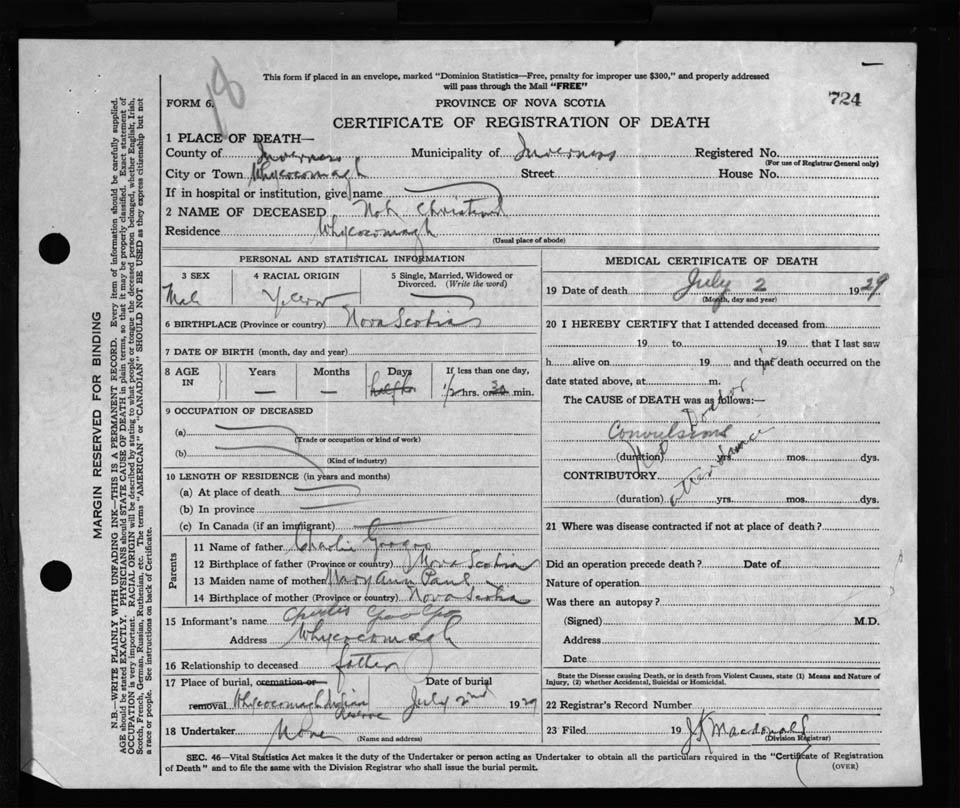 18
This form if placed in an envelope, marked "Dominion Statistics—Free, penalty for improper use $300," and properly addressed
will pass through the Mail "FREE"
FORM 6. PROVINCE OF NOVA SCOTIA 724
CERTIFICATE OF REGISTRATION OF DEATH
1 PLACE OF DEATH—
County of Inverness Municipality of Inverness Registered No.
(For use of Registrar General only)
City or Town Whycocomagh Street House No.
If in hospital or institution, give name
2 NAME OF DECEASED Not Christined
Residence Whycocomagh
(Usual place of abode)
PERSONAL AND STATISTICAL INFORMATION
3 SEX 4 RACIAL ORIGIN 5 Single, Married, Widowed or Divorced. (Write the word)
Male
6 BIRTHPLACE (Province or country) Nova Scotia
7 DATE OF BIRTH (month, day and year)
8 AGE IN Years Months Days If less than one day,
— — half hr 1/2 hrs. or 30 min.
9 OCCUPATION OF DECEASED
(a)
(Trade or occupation or kind of work)
(b)
(Kind of industry)
10 LENGTH OF RESIDENCE (in years and months)
(a) At place of death
(b) In province
(c) In Canada (if an immigrant)
Parents
11 Name of father Charlie Googoo
12 Birthplace of father (Province or country) Nova Scotia
13 Maiden name of mother Mary Ann Paul
14 Birthplace of mother (Province or country) Nova Scotia
15 Informant's name Charles Googoo
Address Whycocomagh
16 Relationship to deceased father
17 Place of burial, cremation or removal Date of burial
Whycocomagh Indian Reserve July 2nd 1929
18 Undertaker None
(Name and address)
MEDICAL CERTIFICATE OF DEATH
19 Date of death July 2 1929
(Month, day and year)
20 I HEREBY CERTIFY that I attended deceased from
19 to 19 that I last saw
h alive on 19 and that death occurred on the
date stated above, at m.
The CAUSE of DEATH was as follows:—
Convulsions
No Doctor
attendance
(duration) yrs. mos. dys.
CONTRIBUTORY
(duration) yrs. mos. dys.
21 Where was disease contracted if not at place of death?
Did an operation precede death? Date of
Nature of operation
Was there an autopsy?
(Signed) M.D.
Address
Date
State the Disease causing Death, or in death from Violent Causes, state (1) Means and Nature of
Injury, (2) whether Accidental, Suicidal or Homicidal.
22 Registrar's Record Number
23 Filed 19 J K Macdonald
(Division Registrar)
SEC. 46—Vital Statistics Act makes it the duty of the Undertaker or person acting as Undertaker to obtain all the particulars required in the "Certificate of Registration
of Death" and to file the same with the Division Registrar who shall issue the burial permit.
(OVER)
MARGIN RESERVED FOR BINDING
N.B.—WRITE PLAINLY WITH UNFADING INK—THIS IS A PERMANENT RECORD. Every item of information should be carefully supplied.
AGE should be stated EXACTLY. PHYSICIANS should STATE CAUSE OF DEATH in plain terms, so that it may be properly classified. Exact statement of
OCCUPATION is very important. RACIAL ORIGIN will be described by stating to what people or tongue the deceased person belonged, whether English, Irish,
Scotch, French, German, Russian, Ruthenian, etc. The terms "AMERICAN" or "CANADIAN" SHOULD NOT BE USED as they express citizenship but not
a race or people. See instructions on back of Certificate.